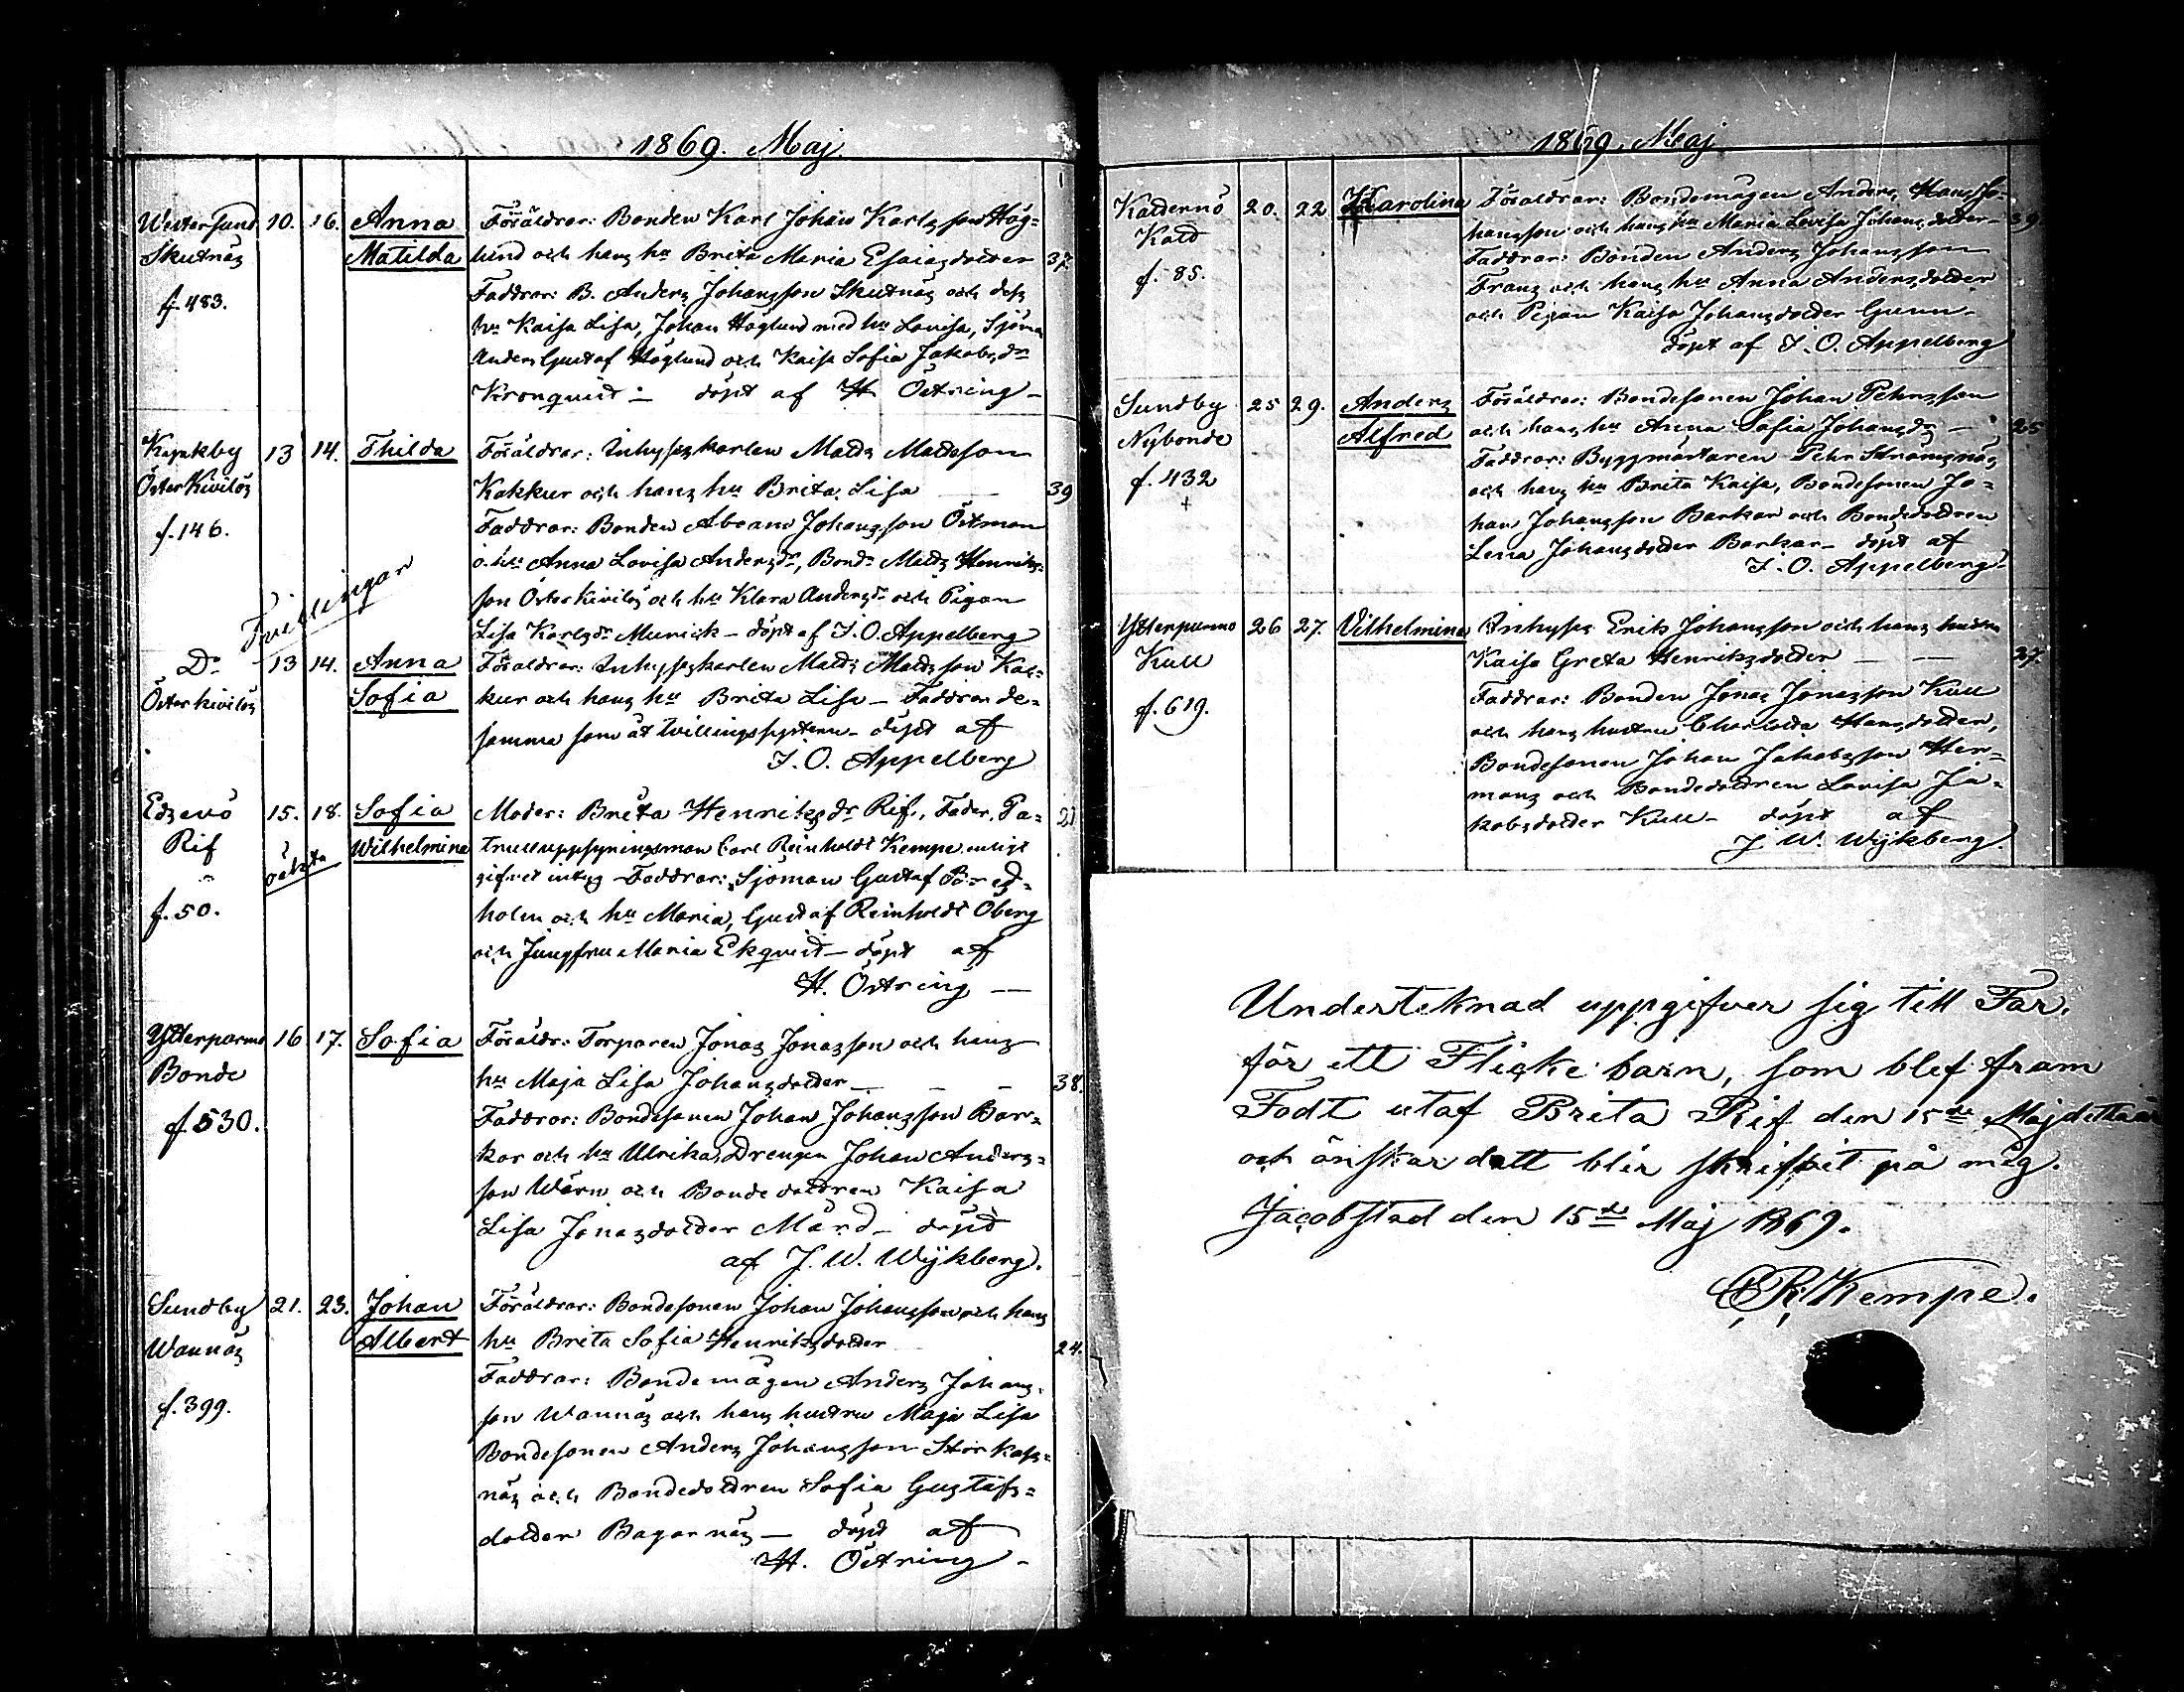 1869. Maj.
Westersund 10. 16. Anna Föräldrar: Bonden Karl Johan Karlsson Hög=
Skutnäs Matilda lund och hans hu Brita Maria Esaiasdotter 37
f. 483. Faddrar: B. Anders Johansson Skutnäs och dess
hu Kaisa Lisa, Johan Höglund med hu Lovisa, Sjöm
Anders Gustaf Höglund och Kaisa Sofia Jakobsdr
Kronquist — döpt af H. Östring —
Kyrkby 13 14. Thilda Föräldrar: Inhyseskarlen Matts Mattsson
Öster Kivilös Kakkur och hans hu Brita Lisa — 39
f. 146. Faddrar: Bonden Abram Johansson Östman
o. hu Anna Lovisa Andersdr, Bond. Matts Henriks=
son Österkivilös och hu Klara Andersdr och Pigan
Lisa Karlsdr Munick — döpt af I. O. Appelberg
Tvillingar
Do 13 14. Anna Föräldrar: Inhyseskarlen Matts Mattsson Kak=
Österkivilös Sofia kur och hans hu Brita Lisa — Faddrar de=
samma som åt tvillingssystern — döpt af
I. O. Appelberg
Edsevö 15. 18. Sofia Moder: Brita Henriksdr Rif, Fader, Pa= 21
Rif oäkta Wilhelmina trulluppsyningsman Carl Reinholdt Kempe enligt
f. 50. gifvet intyg — Faddrar: Sjöman Gustaf
holm och hu Maria, Gustaf Reinholdt Öberg
och Jungfru Maria Ekquist — döpt af
H. Östring —
Ytterparmo 16 17. Sofia Föräldr: Torparen Jonas Jonasson och hans
Bonde hu Maja Lisa Johansdotter — — — 38.
f. 530. Faddrar: Bondesonen Johan Johansson Bar=
kar och hu Ulrika, Drengen Johan Anders=
son Wärn och Bondedottren Kaisa
Lisa Jonasdotter Mård — döpt
af J. W. Wijkberg.
Sundby 21. 23. Johan Föräldrar: Bondesonen Johan Johansson och hans
Wannäs Albert hu Brita Sofia Henriksdotter 24.
f. 399. Faddrar: Bondemågen Anders Johans=
son Wannäs och hans hustru Maja Lisa
Bondesonen Anders Johansson Storkass=
näs och Bondedottren Sofia Gustafs=
dotter Bagarnäs — döpt af
H. Östring —
1869. Maj
Katternö 20. 22 Karolina Föräldrar: Bondemågen Anders Hans Jo=
Kald hansson och hans hu Maria Lovisa Johansdotter — 39
f. 85. Faddrar: Bonden Anders Johansson
Frans och hans hu Anna Andersdotter
och Pigan Kaisa Johansdotter Gunn —
döpt af I. O. Appelberg
Sundby 25 29. Anders Föräldrar: Bondesonen Johan Pehrsson
Nybonde Alfred och hans hu Anna Sofia Johansdr — 25
f. 432 Faddrar: Byggmästaren Pehr Strömsnäs
+ och hans hu Brita Kaisa, Bondesonen Jo=
han Johansson Barkar och Bondedottren
Lena Johansdotter Barkar — döpt af
I. O. Appelberg
Ytterpurmo 26 27. Vilhelmina Inhyses Erik Johansson och hans hustru
Kull Kaisa Greta Henriksdotter — — 27.
f. 619. Faddrar: Bonden Jonas Jonasson Kull
och hans hustru Charlotta Hansdotter,
Bondesonen Johan Jakobsson Her=
mans och Bondedottren Lovisa Ja=
kobsdotter Kull — döpt af
J. W. Wijkberg
Underteknad uppgifver sig till Far.
för ett Flicke barn, som blef fram
Födt utaf Brita Rif den 15de Maj detta år
och önskar datt blir skrifvit på mig.
Jacobstad den 15de Maj 1869.
C R Kempe.